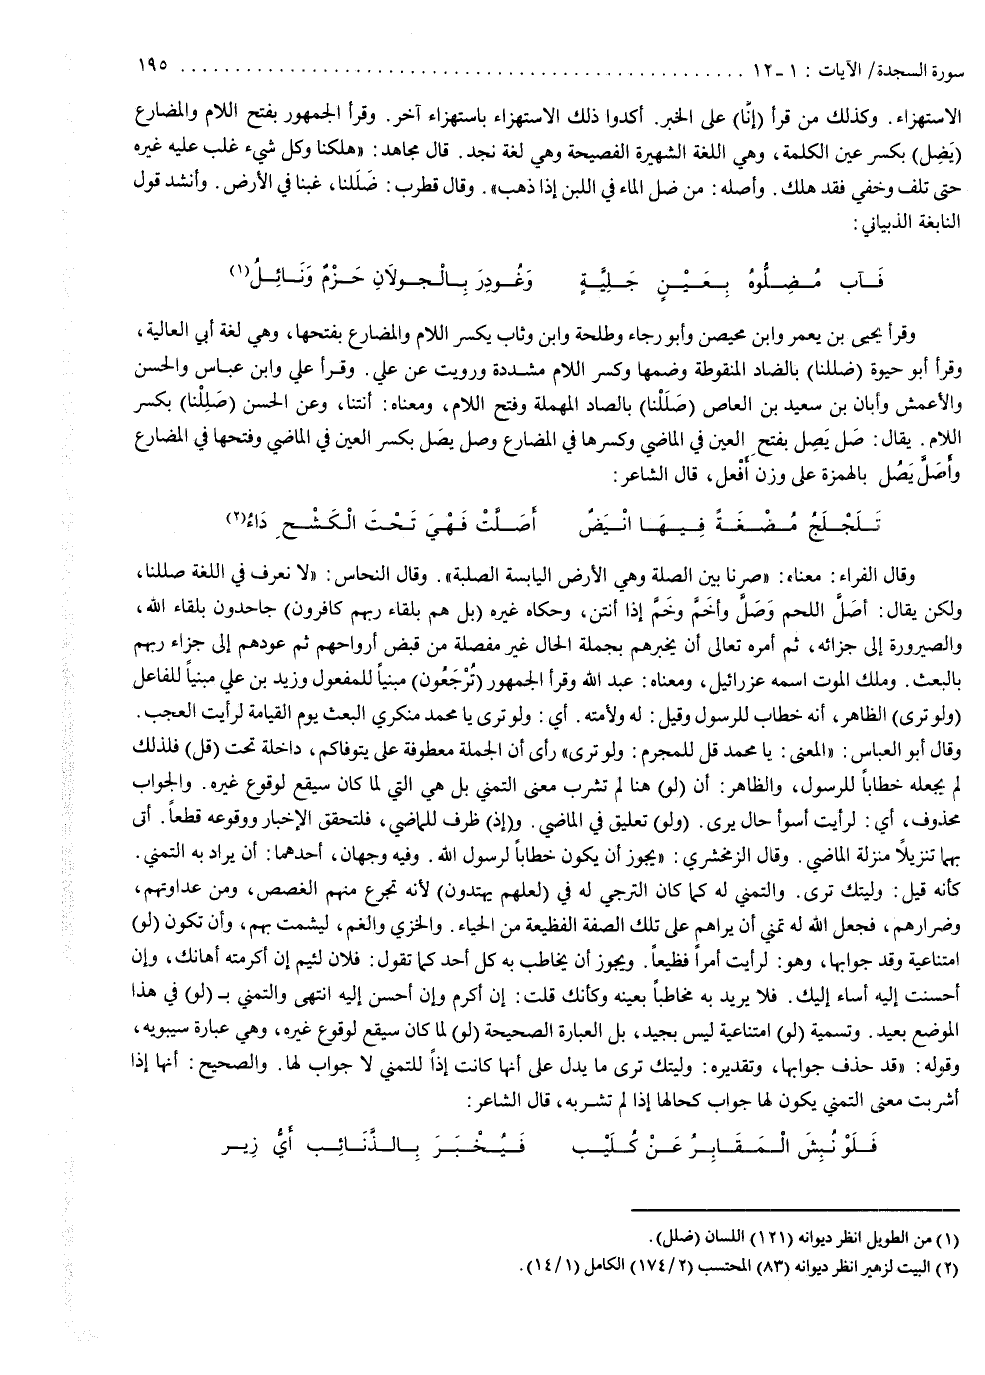 سورة السجدة/ الآيات : ١-١٢ ........................................ ١٩٥
الاستهزاء. وكذلك من قرأ (إنَّا) على الخبر. أكدوا ذلك الاستهزاء باستهزاء آخر. وقرأ الجمهور بفتح اللام والمضارع
(يَضِل) بكسر عين الكلمة، وهي اللغة الشهيرة الفصيحة وهي لغة نجد. قال مجاهد: «هلكنا وكل شيء غلب عليه غيره
حتى تلف وخفي فقد هلك. وأصله: من ضل الماء في اللبن إذا ذهب». وقال قطرب: ضَلَلنا، غبنا في الأرض. وأنشد قول
النابغة الذبياني:
فَآب مُضِلُّوهُ بِعَيْنٍ جَلِيَّةٍ وَغُودِرَ بِالْجولَانِ حَزْمٌ وَنَائِلُ(١)
وقرأ يحيى بن يعمر وابن محيصن وأبو رجاء وطلحة وابن وثاب يكسر اللام والمضارع بفتحها، وهي لغة أبي العالية،
وقرأ أبو حيوة (ضللنا) بالضاد المنقوطة وضمها وكسر اللام مشددة ورويت عن علي. وقرأ علي وابن عباس والحسن
والأعمش وأبان بن سعيد بن العاص (صَلَلْنا) بالصاد المهملة وفتح اللام، ومعناه: أنتنا، وعن الحسن (صَلِلْنا) بكسر
اللام. يقال: صَل يَصِل بفتح العين في الماضي وكسرها في المضارع وصل يصَل بكسر العين في الماضي وفتحها في المضارع
وأَصَلَّ يَصُل بالهمزة على وزن أَفْعل، قال الشاعر:
تَلَجْلَجُ مُضْغَةً فِيهَا انْيَضٌ أَصَلَّتْ فَهْيَ تَحْتَ الْكَشْحِ دَاءُ(٢)
وقال الفراء: معناه: «صرنا بين الصلة وهي الأرض اليابسة الصلبة». وقال النحاس: «لا نعرف في اللغة صللنا،
ولكن يقال: أصَلَّ اللحم وَصَلَّ وأخَمَّ وخَمَّ إذا أنتن، وحكاه غيره (بل هم بلقاء ربهم كافرون) جاحدون بلقاء الله،
والصيرورة إلى جزائه، ثم أمره تعالى أن يخبرهم بجملة الحال غير مفصلة من قبض أرواحهم ثم عودهم إلى جزاء ربهم
بالبعث. وملك الموت اسمه عزرائيل، ومعناه: عبد الله وقرأ الجمهور (تُرْجَعُون) مبنياً للمفعول وزيد بن علي مبنياً للفاعل
(ولو ترى) الظاهر، أنه خطاب للرسول وقيل: له ولأمته. أي: ولو ترى يا محمد منكري البعث يوم القيامة لرأيت العجب.
وقال أبو العباس: «المعنى: يا محمد قل للمجرم: ولو ترى» رأى أن الجملة معطوفة على يتوفاكم، داخلة تحت (قل) فلذلك
لم يجعله خطاباً للرسول، والظاهر: أن (لو) هنا لم تشرب معنى التمني بل هي التي لما كان سيقع لوقوع غيره. والجواب
محذوف، أي: لرأيت أسوأ حال يرى. (ولو) تعليق في الماضي. و(إذ) ظرف للماضي، فلتحقق الإخبار ووقوعه قطعاً. أتى
بهما تنزيلاً منزلة الماضي. وقال الزمخشري: «يجوز أن يكون خطاباً لرسول الله. وفيه وجهان، أحدهما: أن يراد به التمني.
كأنه قيل: وليتك ترى. والتمني له كما كان الترجي له في (لعلهم يهتدون) لأنه تجرع منهم الغصص، ومن عداوتهم،
وضرارهم، فجعل الله له تمني أن يراهم على تلك الصفة الفظيعة من الحياء. والخزي والغم، ليشمت بهم، وأن تكون (لو)
امتناعية وقد جوابها، وهو: لرأيت أمراً فظيعاً. ويجوز أن يخاطب به كل أحد كما تقول: فلان لئيم إن أكرمته أهانك، وإن
أحسنت إليه أساء إليك. فلا يريد به مخاطباً بعينه وكأنك قلت: إن أكرم وإن أحسن إليه انتهى والتمني بـ (لو) في هذا
الموضع بعيد. وتسمية (لو) امتناعية ليس بجيد، بل العبارة الصحيحة (لو) لما كان سيقع لوقوع غيره، وهي عبارة سيبويه،
وقوله: «قد حذف جوابها، وتقديره: وليتك ترى ما يدل على أنها كانت إذاً للتمني لا جواب لها. والصحيح: أنها إذا
أشربت معنى التمني يكون لها جواب كحالها إذا لم تشربه، قال الشاعر:
فَلَوْ نُبِشَ الْمَقَابِرُ عَنْ كُلَيْب فَيُخْبَرَ بِالذَّنَائِب أَيُّ زِير
(١) من الطويل انظر ديوانه (١٢١) اللسان (ضلل).
(٢) البيت لزهير انظر ديوانه (٨٣) المحتسب (٢/١٧٤) الكامل (١/١٤).